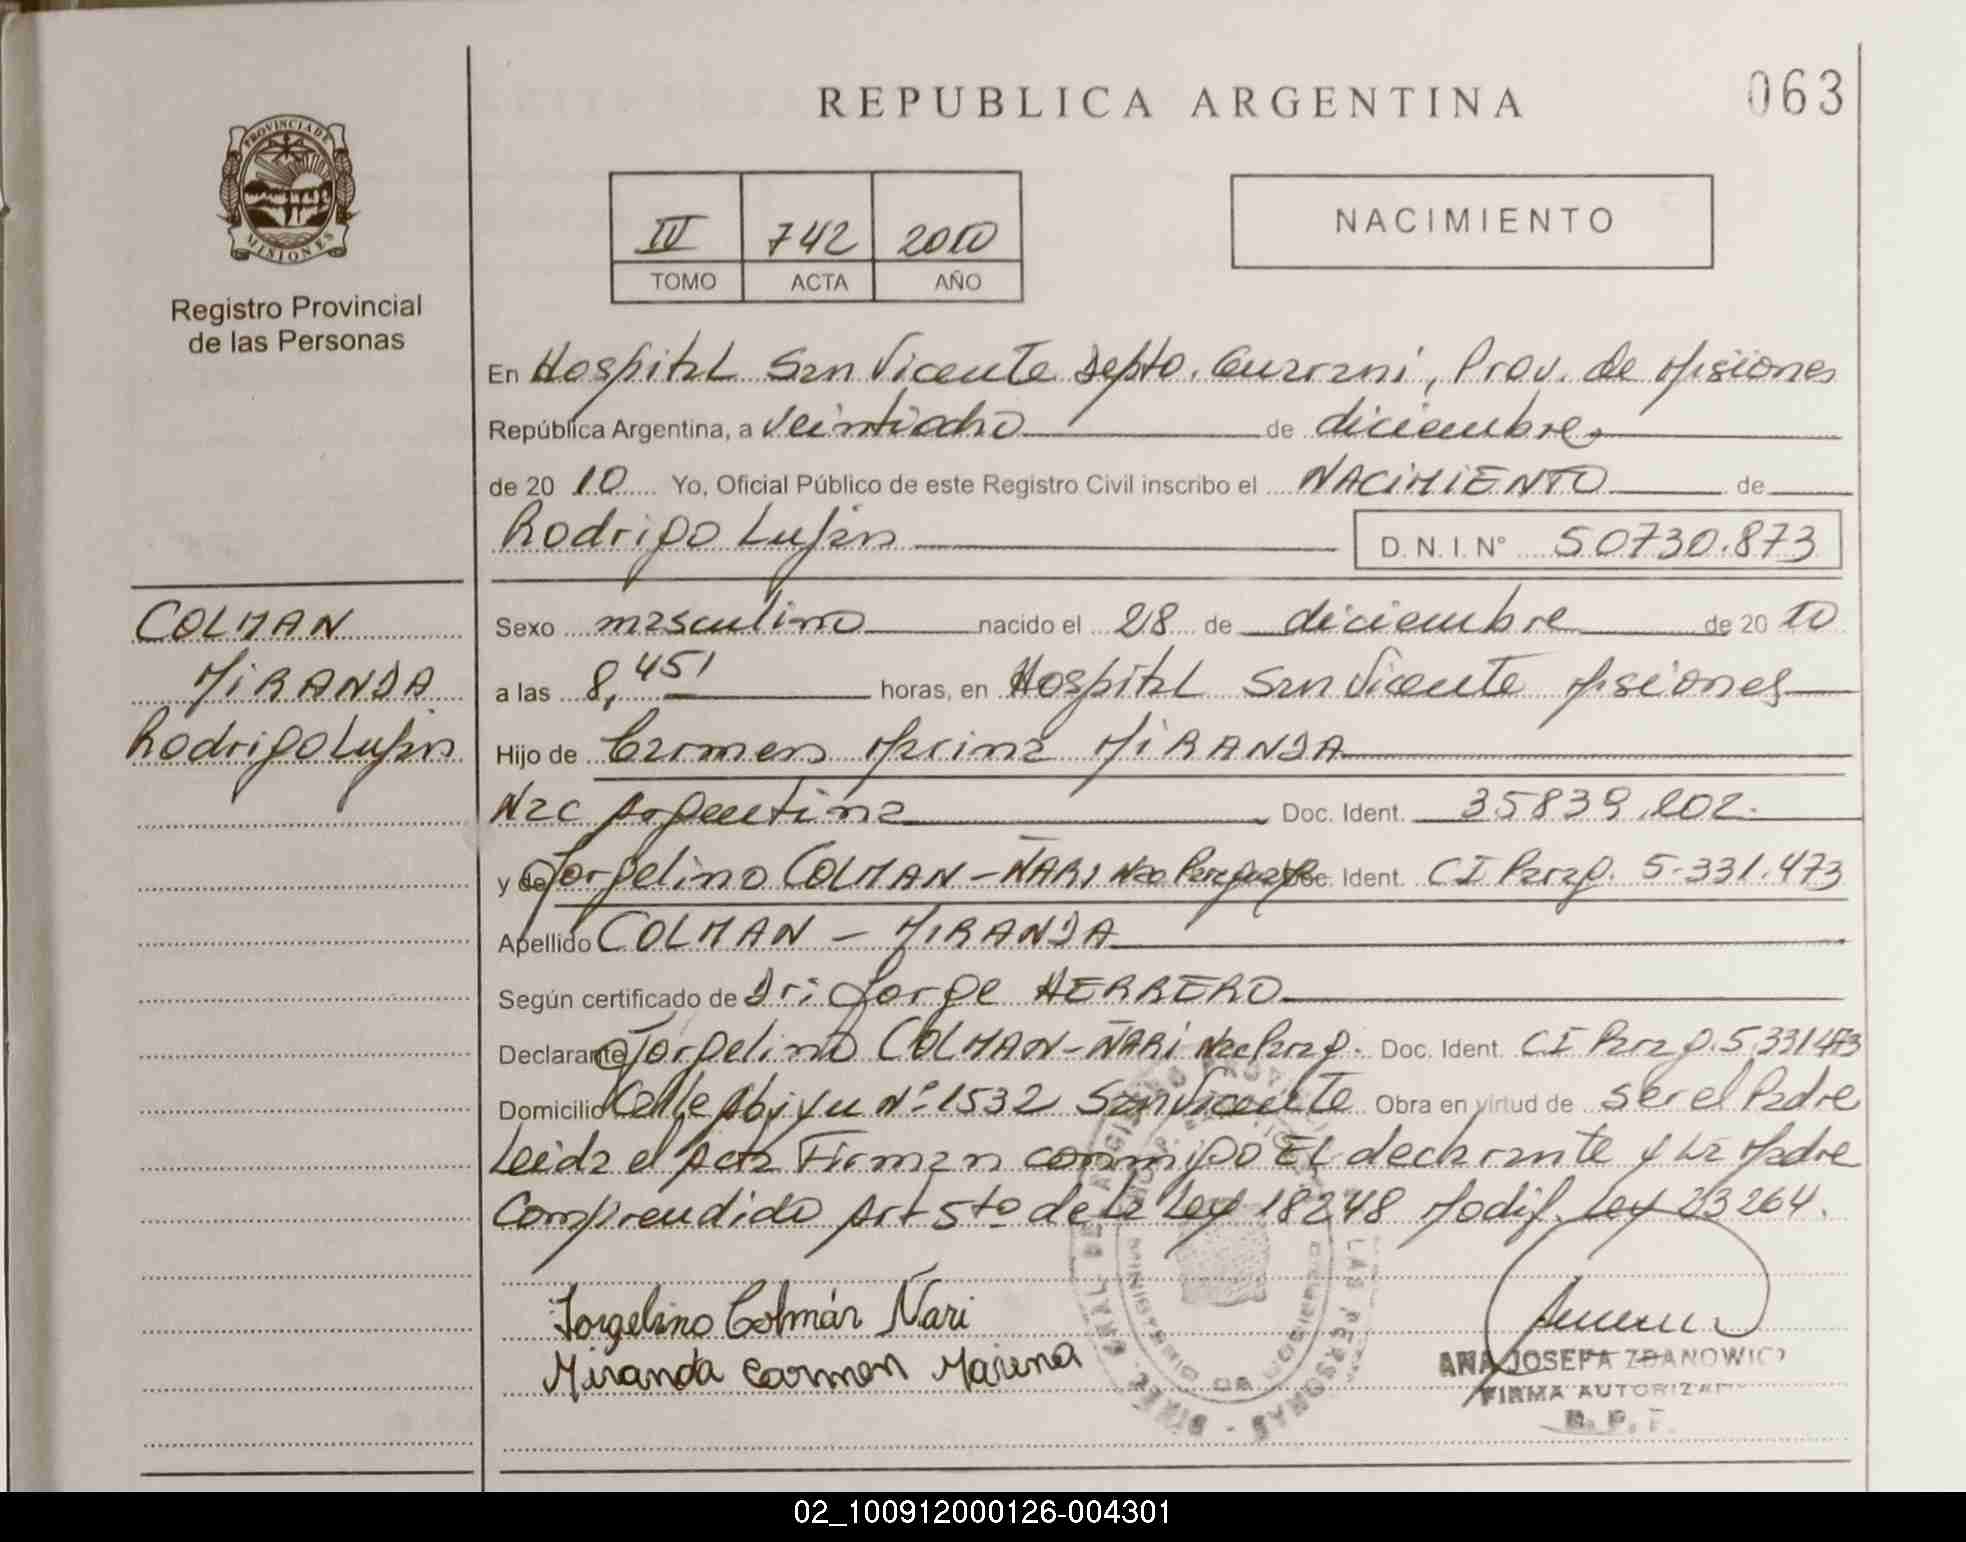 REPUBLICA ARGENTINA
063
PROVINCIA DE
MISIONES
Registro Provincial
de las Personas
IV 742 2010
TOMO ACTA AÑO
NACIMIENTO
En Hospital San Vicente Depto. Guarani, Prov. de Misiones
República Argentina, a veintiocho de diciembre
de 2010 Yo, Oficial Público de este Registro Civil inscribo el NACIMIENTO de
Rodrigo Luján
D.N.I.Nº 50730.873
COLMAN
MIRANDA
Rodrigo Luján
Sexo masculino nacido el 28 de diciembre de 2010
a las 8,45' horas, en Hospital San Vicente Misiones
Hijo de Carmen Marina MIRANDA
Nac Argentina Doc. Ident. 35839.202.
y de Jorgelino COLMAN - ÑARI Nac Paraguaya Doc. Ident. CI Parag. 5.331.473
Apellido COLMAN - MIRANDA
Según certificado de Dr: Jorge HERRERO
Declarante Jorgelino COLMAN-ÑARI Nac Parag. Doc. Ident. CI Parag. 5.331473
Domicilio Calle Abiyu Nº 1532 San Vicente Obra en virtud de ser el Padre
Leida el Acta Firman conmigo El declarante y La Madre
Comprendido Art 5to de la Ley 18248 Modif. Ley 23264.
Jorgelino Colmán Ñari
Miranda Carmen Marina
ANA JOSEFA ZDANOWICZ
FIRMA AUTORIZADA
R. P. F.
02_100912000126-004301